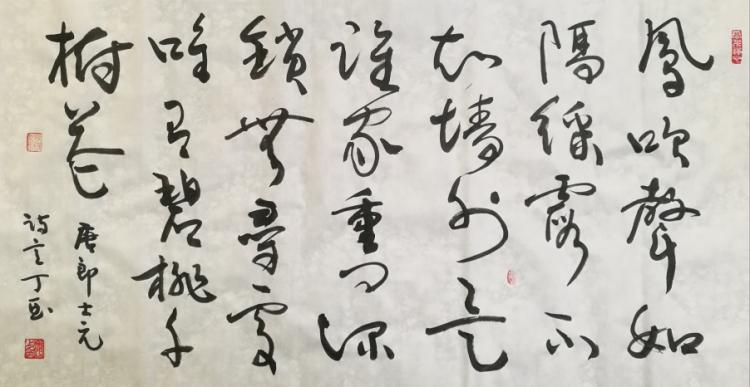 鳳吹聲如
隔綵霞不
知墻外是
誰家重門深
鎖無尋處
唯有碧桃千
樹花
唐郎士元
詩丁酉